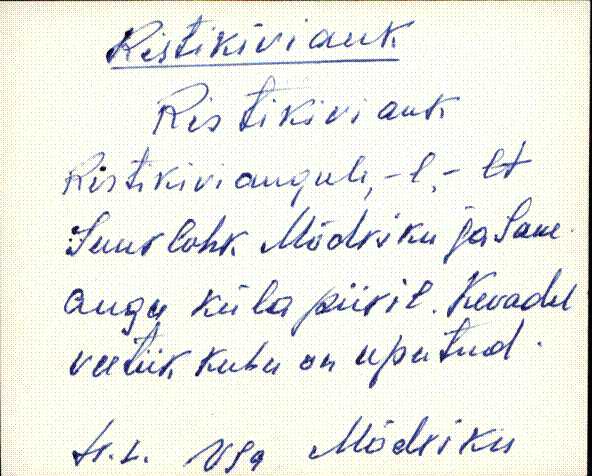 Ristikiviauk
Ristikiviauk
Ristikiviaugule, -l, -lt
Suur lohk Mõdriku ja Saue-
augu küla piiril. Kevadel
veetiik kuhu on uputud.
Mõdriku